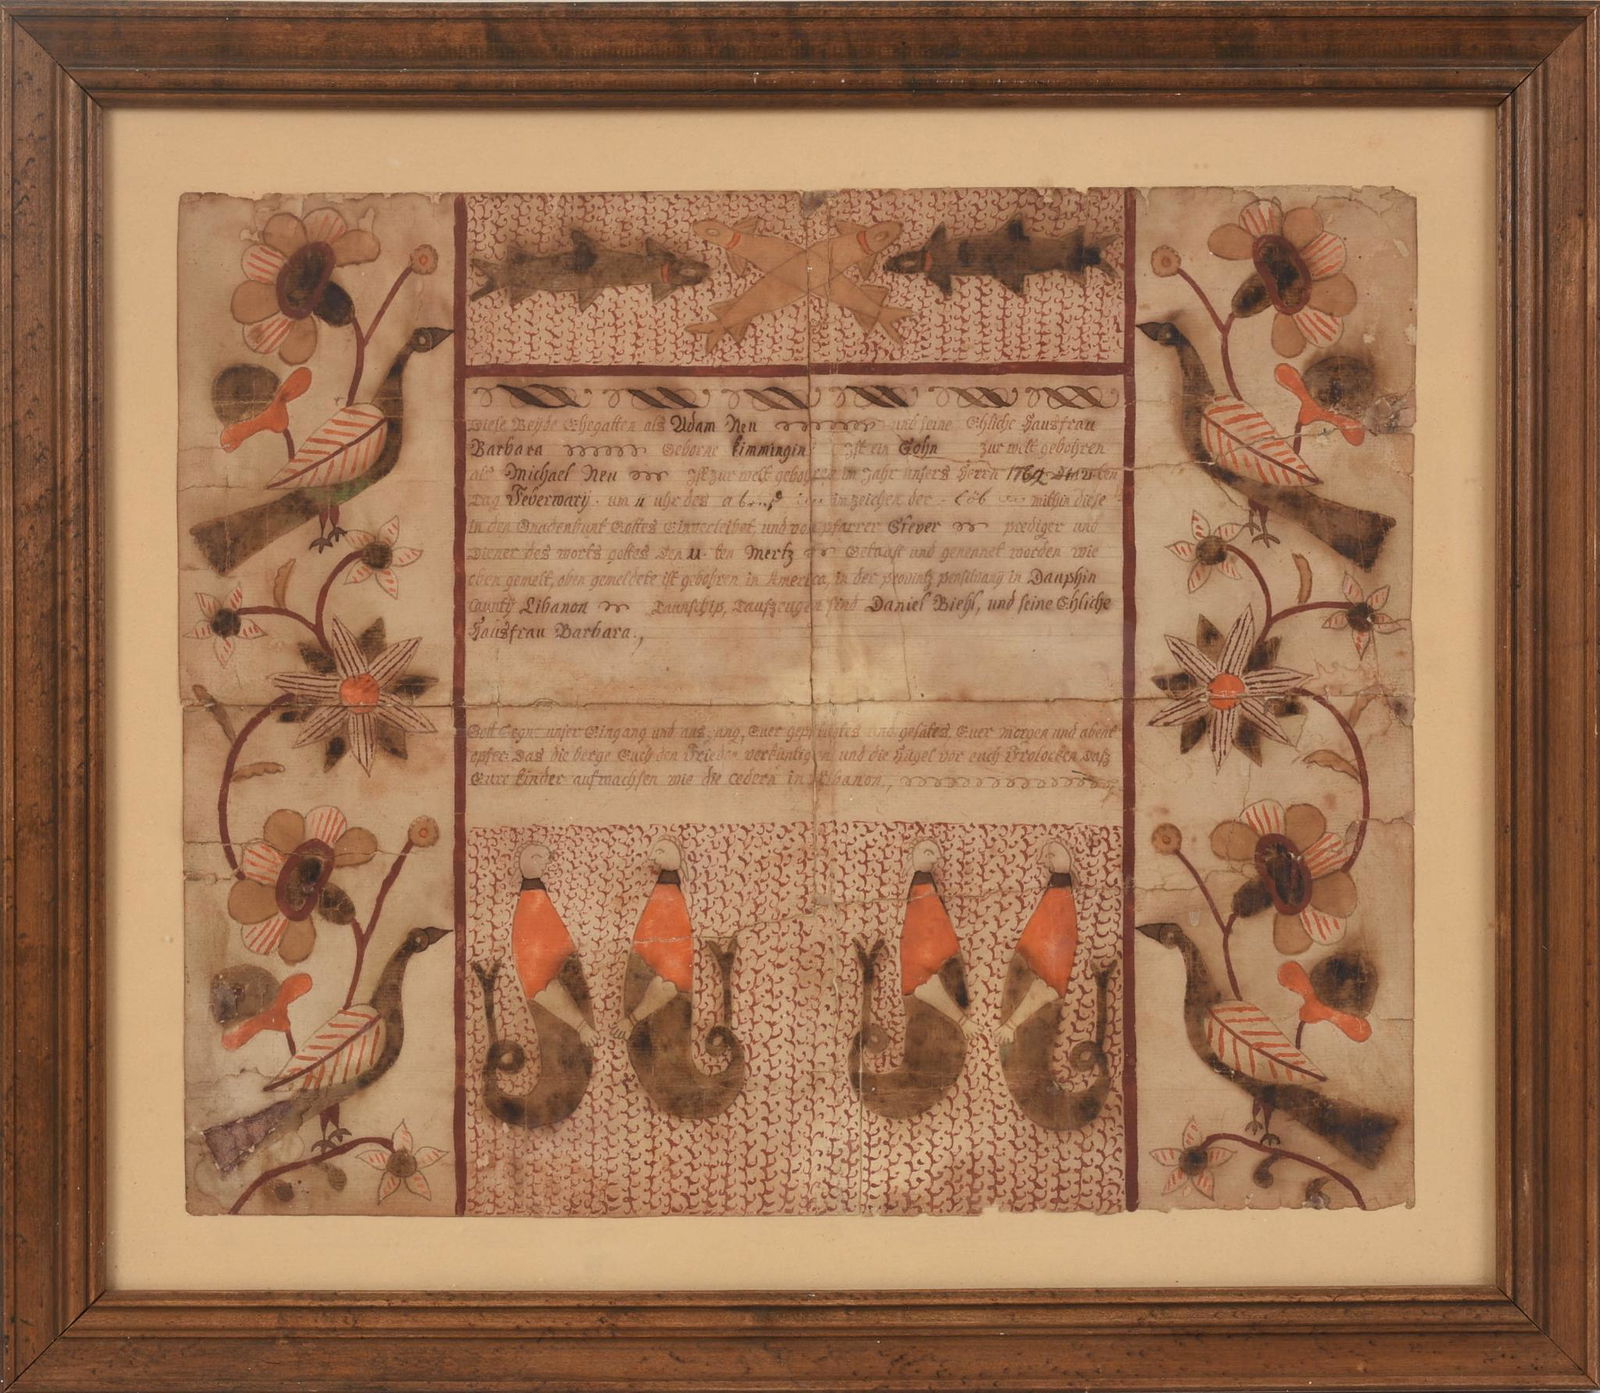 Diese Beyde Ehegatten als Adam Neu und seine Ehliche Hausfrau
Barbara Geborne Kimmingin; Ist ein Sohn zur welt gebohren
als Michael Neu Ist zur welt gebohren im Jahr unsers Herrn 176 ten
tag Feberwary. um 11 uhr des im zeichen der mithin diese
in den Gnadenbunt Gottes Einverleibet und von pfarrer Stever prediger und
Diener des worts gottes den 11. ten Mertz Getauft und genennet worden wie
oben gemelt, oben gemeldete ist gebohren in America, in der provintz pensilvany in Dauphin
County Libanon Taunschip, Taufzeugen send Daniel Biehl, und seine Ehliche
Hausfrau Barbara.,
Gott Segne unser Eingang und aus gang, Euer und Euer morgen und abent
opfer. Das die berge Euch den Frieden verküntigen und die Hügel vor euch Frolocken Daß
Eure Kinder aufwachsen wie die cedern in Libanon.,